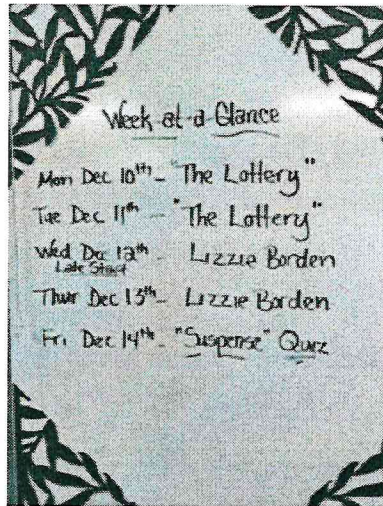 Week-at-a-Glance
Mon Dec 10th - "The Lottery"
Tue Dec 11th - "The Lottery"
Wed Dec 12th - Lizzie Borden
Late Start
Thur Dec 13th - Lizzie Borden
Fri Dec 14th - "Suspense" Quiz